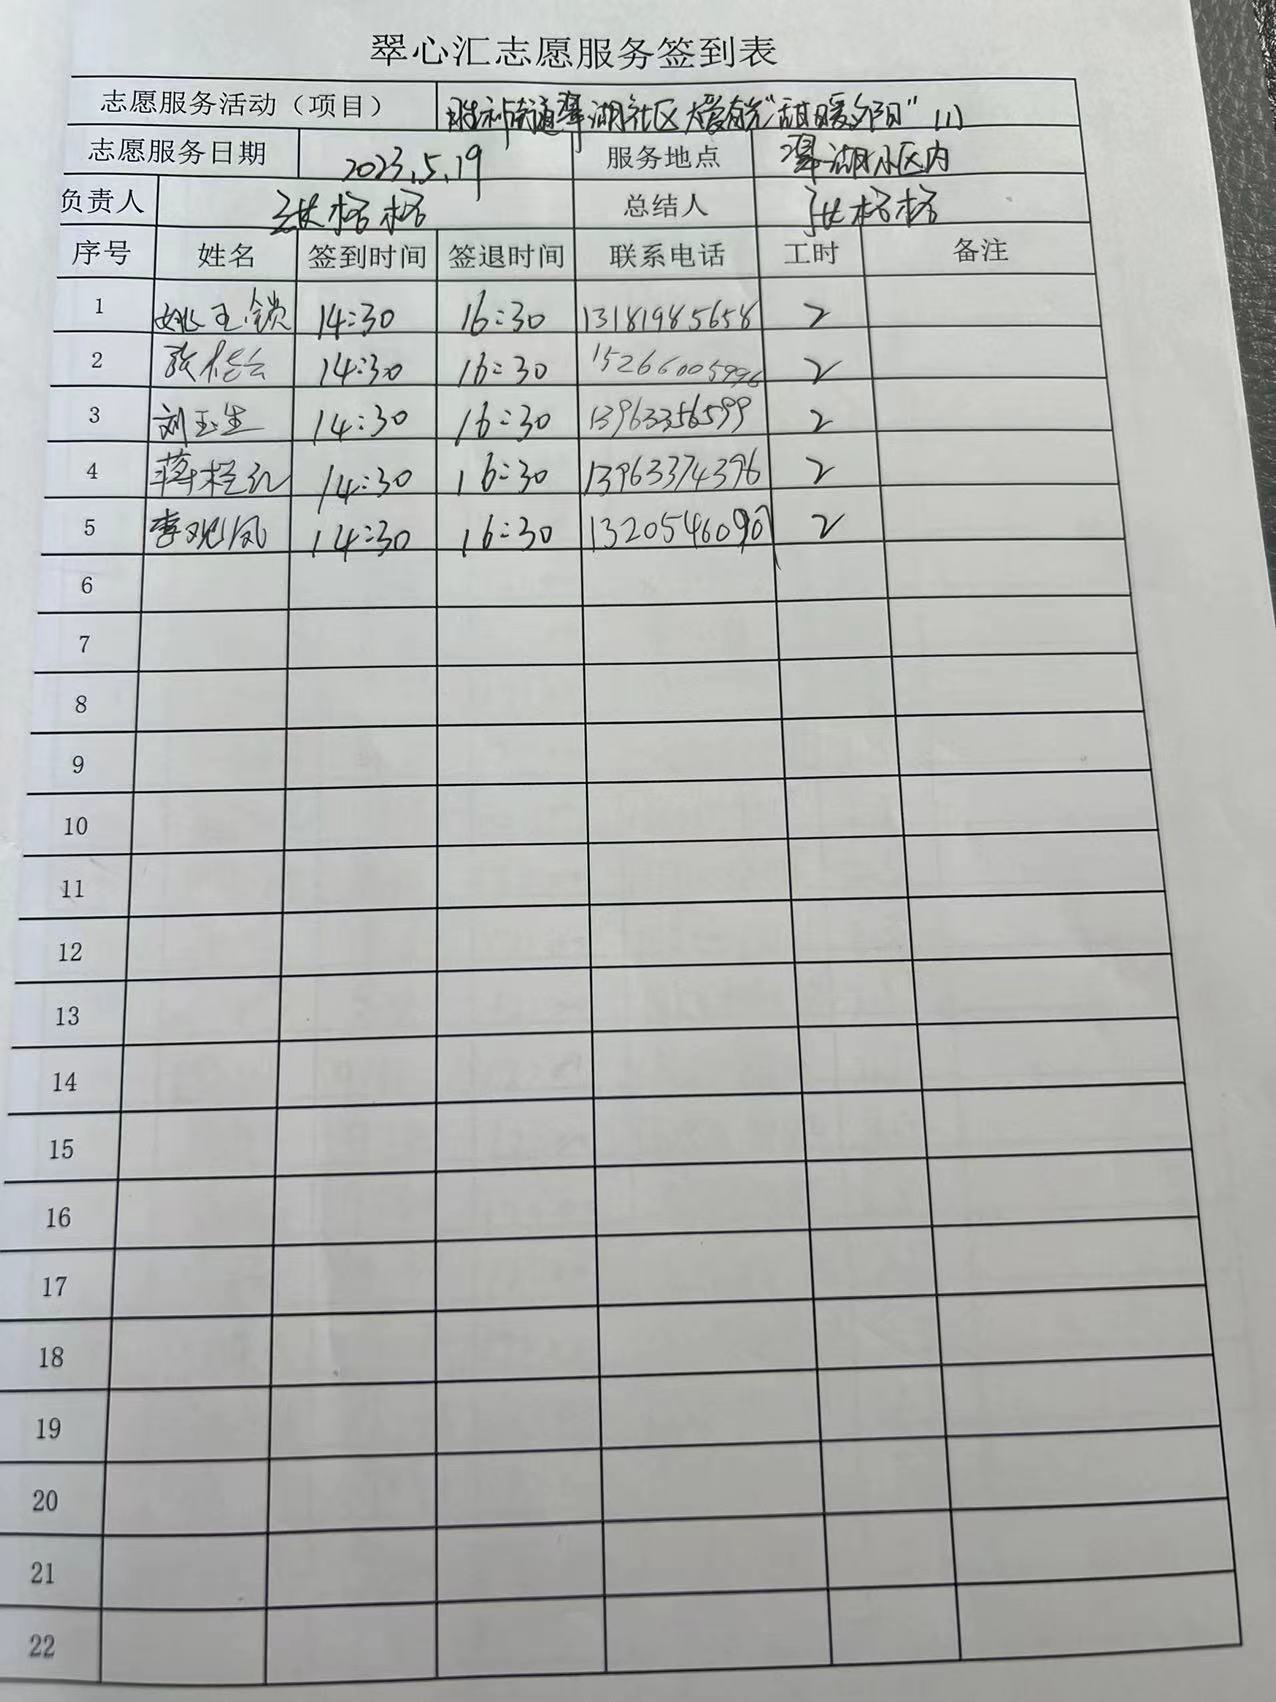 翠心汇志愿服务签到表
志愿服务活动（项目） 胜利街道翠湖社区大爱有光“甜暖夕阳”(1)
志愿服务日期 2023.5.19 服务地点 翠湖小区内
负责人 张格格 总结人 张格格
序号 姓名 签到时间 签退时间 联系电话 工时 备注
1 姚玉锁 14:30 16:30 13181985658 2
2 14:30 16:30 15266005996 2
3 刘玉生 14:30 16:30 13963356599 2
4 蒋桂红 14:30 16:30 13963374396 2
5 李观凤 14:30 16:30 1320546090 2
6
7
8
9
10
11
12
13
14
15
16
17
18
19
20
21
22